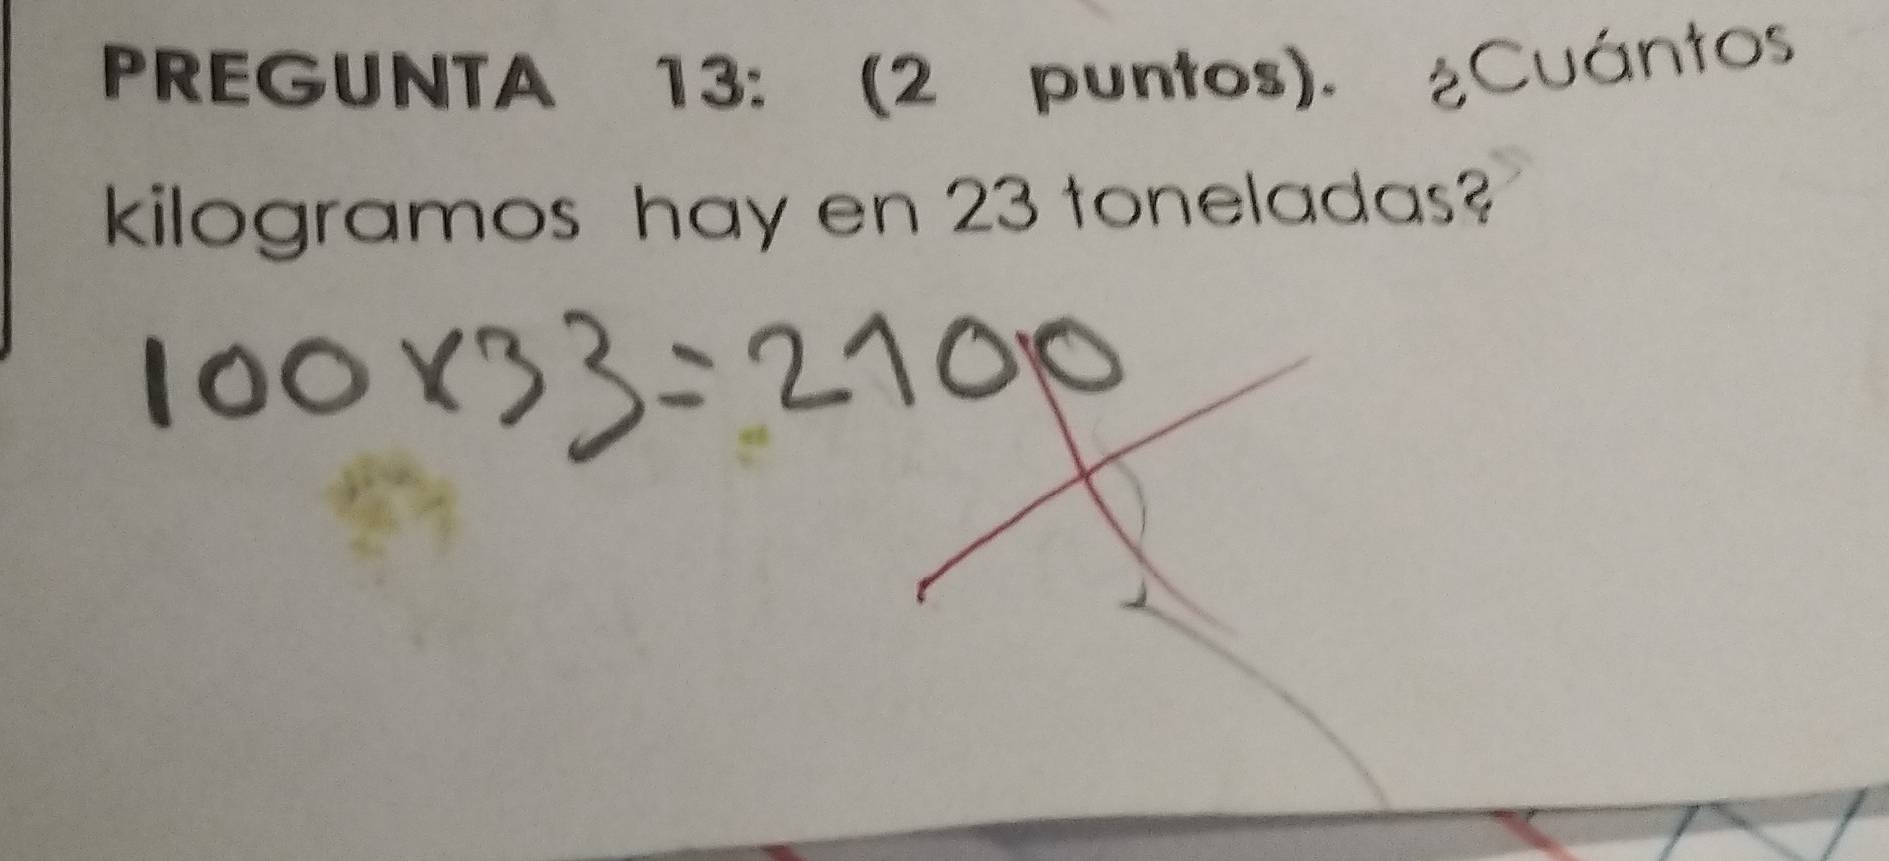 PREGUNTA 13: (2 puntos). ¿Cuántos
kilogramos hay en 23 toneladas?
100x33=2100